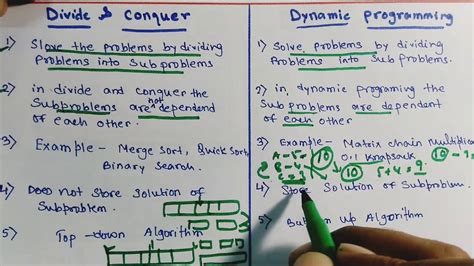 Divide & Conquer
1) Slove the problems by dividing
Problems into Subproblems
2) in divide and conquer the
Subproblems are not dependend
of each other.
3) Example - Merge Sort, Quick Sort,
Binary Search.
4) Does not Store Solution of
Subproblem.
5) Top-down Algorithm
Dynamic Programming
1) Solve problems by dividing
Problems into Subproblems.
2) in dynamic programing the
Subproblems are dependent
of each other
3) Example - Matrix chain Multiplication
0.1 Knapsack
A - 5 -
B - 4 -
10
10
10
5+4=9
4) Store Solution of Subproblem
5) Up Algorithm